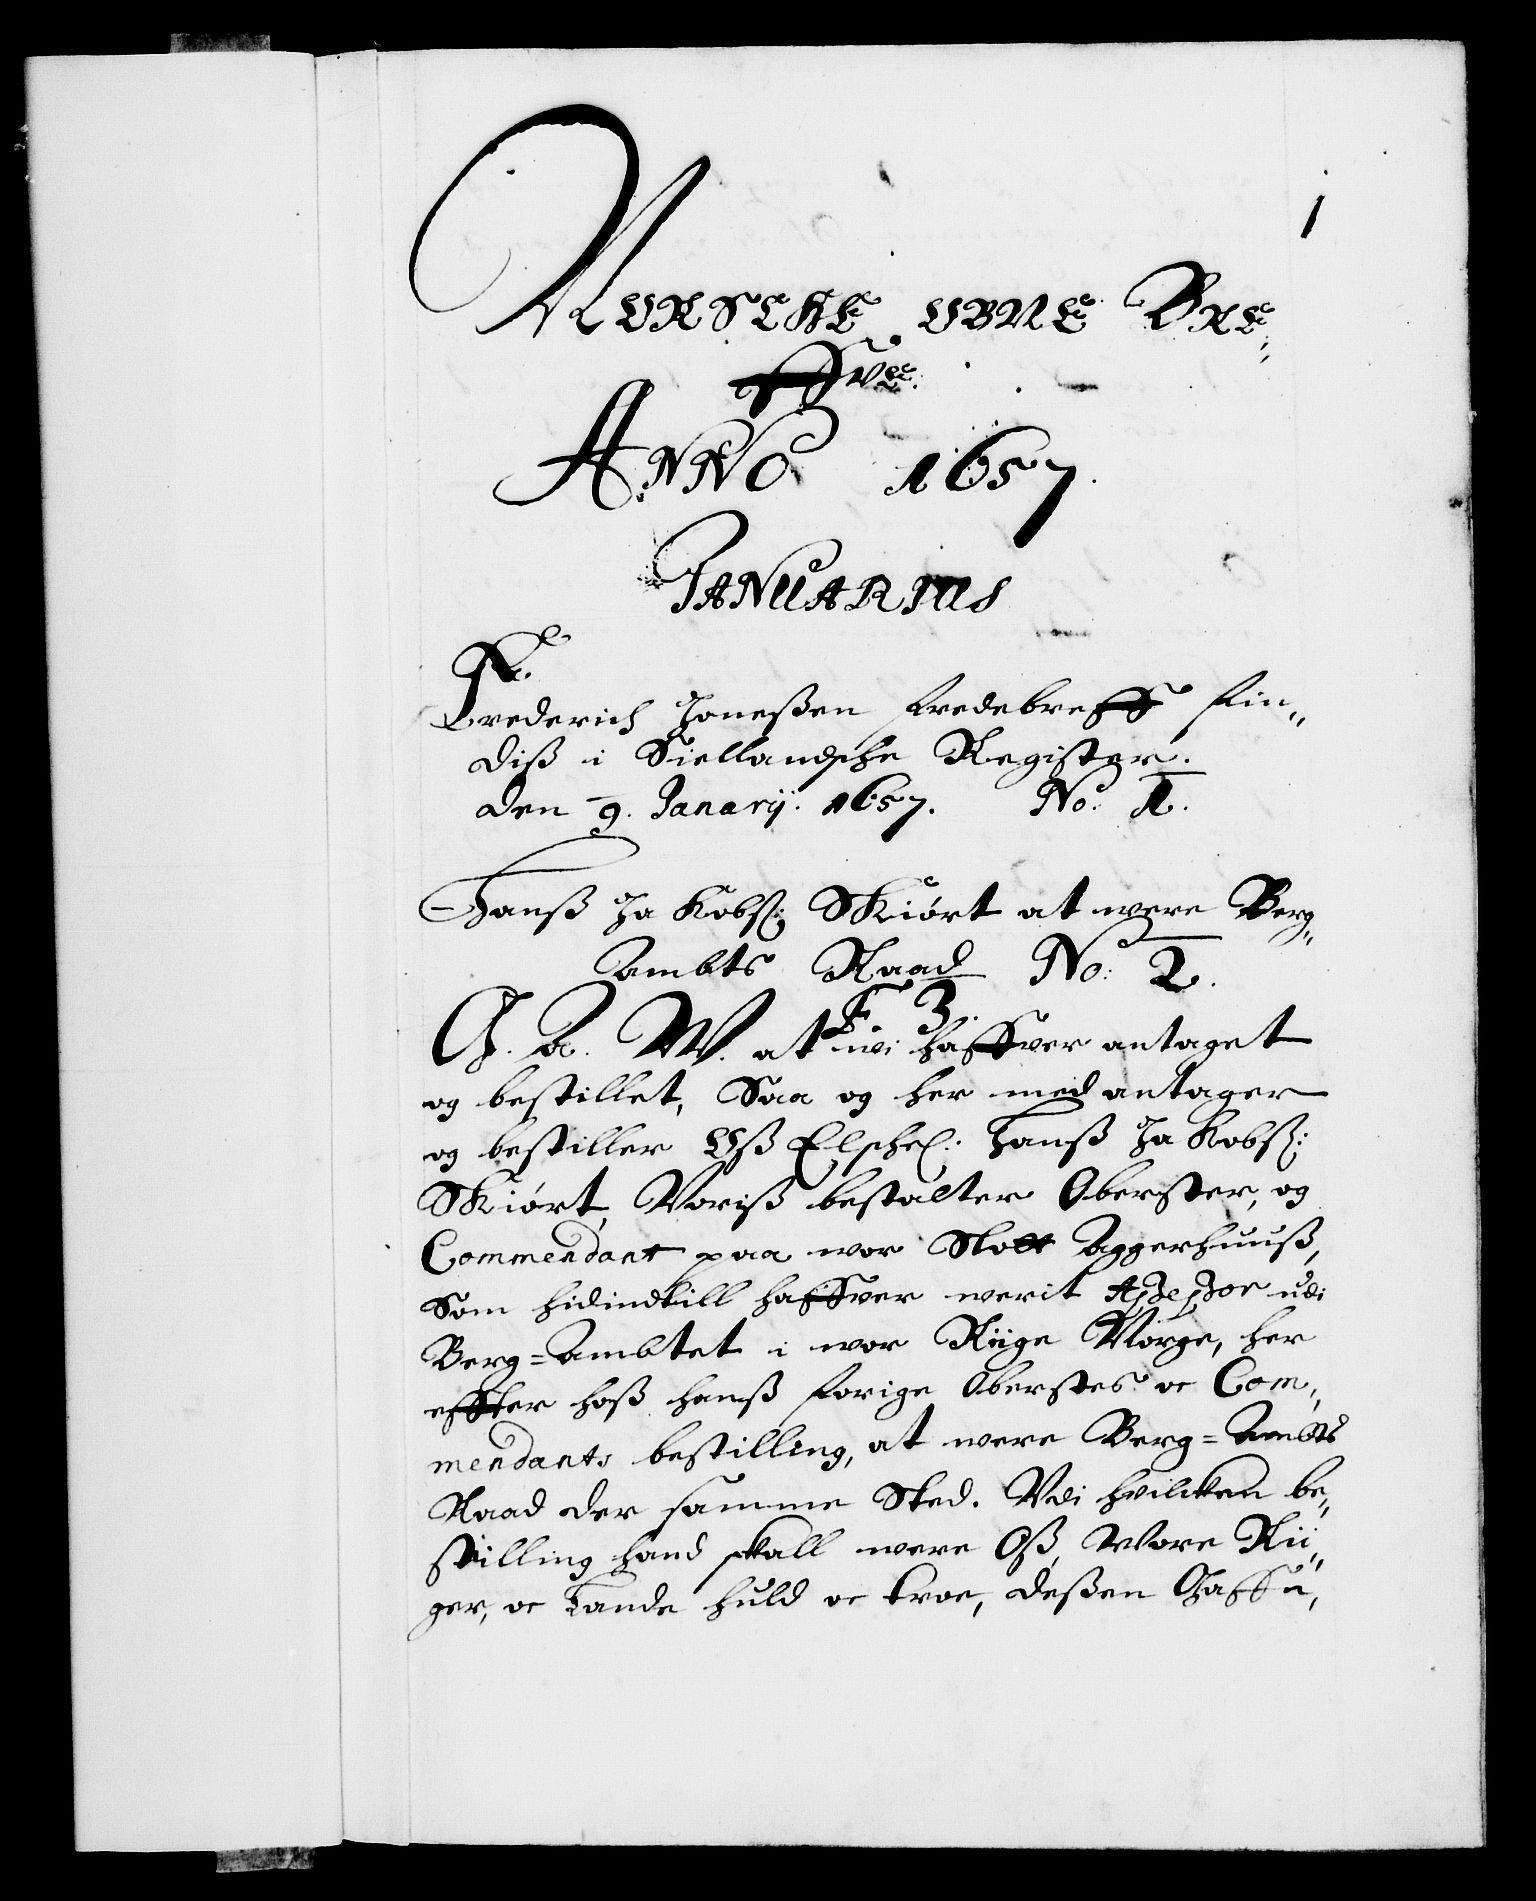 1
Norsche obne Bre,,
ffve.
Anno 1657.
Januarius
F.
Frederich Joneßen fredebreff fin,,
diß i Siellandsche Register.
den 9. Janarij. 1657. No. 1.
Hanß Jakobs: Skiört at were Berg,,
Ambts Raad No: 2.
F 3.
G. A. W. at wi haffver antaget
og bestillet, Saa og her med antager
og bestiller Oß Elschel. Hanß Jakobs:
Skiört, Voriß bestalter Oberster, og
Commendant paa wor Slott Aggerhuuß,
Som hidindtill haffver werit Assessor udi
Berg=Ambtet i wor Riige Norge, her
effter hoß hanß forige Oberstes oc Com,
mendants bestilling, at were Berg=Ambts
Raad der samme Sted. Vdi hvilcken be,,
stilling hand skall were Oß, Wore Rii,,
ger, oc Lande huld oc troe, deßen Gaffn,